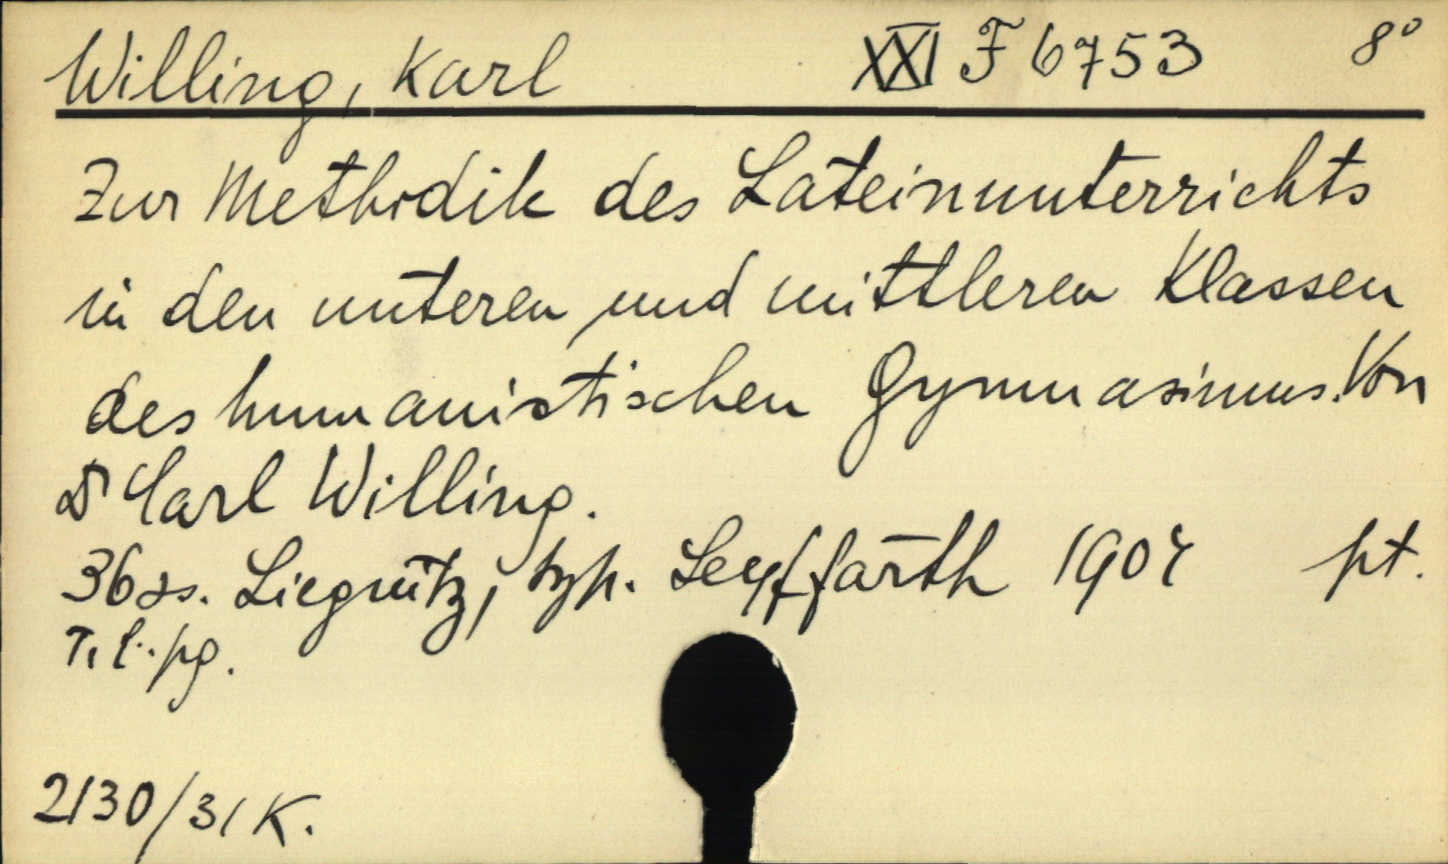 Willing, Karl XXI F 6753 8°
Zur Methodik des Lateinunterrichts
in den unteren und mittleren Klassen
des humanistischen Gymnasiums. Von
Dr Carl Willing.
36 ss. Liegnitz, typ. Seyffarth 1907 pt.
T. l. pg.
2130/31 K.